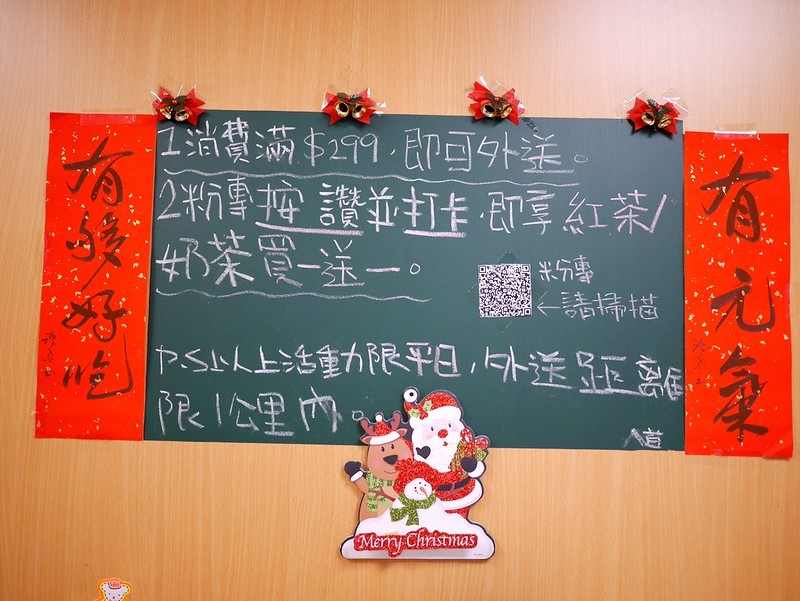 有夠好吃
1消費滿$299,即可外送。
2粉專按讚並打卡,即享紅茶/
奶茶買一送一。
粉專
←請掃描
P.S以上活動限平日,外送距離僅
限1公里內。
有元氣
Merry Christmas